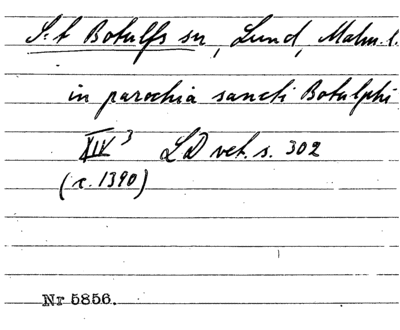 S:t Botulfs sn, Lund, Malm. l.
in parochia sancti Botulphi
XIV 3 LD vet. s. 302
(c. 1390)
Nr 5856.